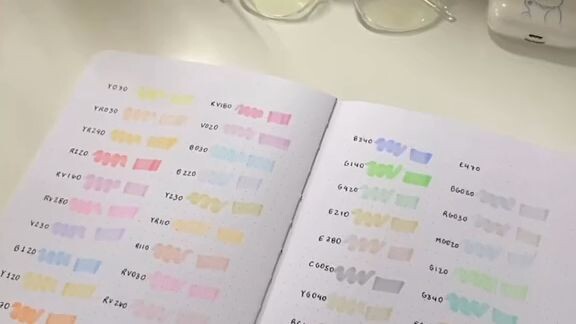 Y030
YR030
YR240
R120
RV140
RV280
V230
B120
Y120
RV180
V020
B030
B220
Y230
YR110
R110
RV030
RV260
B340
G140
G420
E210
E380
CG050
YG040
E470
BG030
RG030
MG020
G120
G340